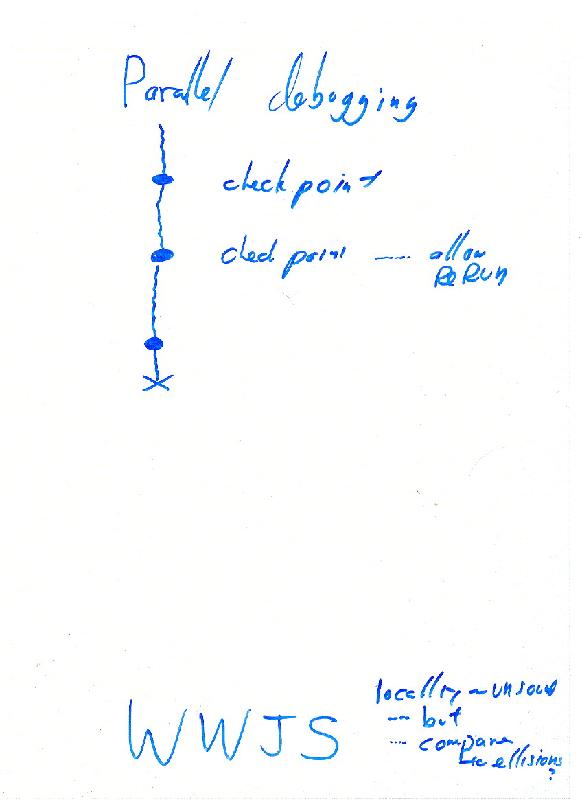 Parallel debugging
checkpoint
checkpoint --- allow
ReRun
WWJS
locality ~ unsound
-- but
--- compare
ellisions
?